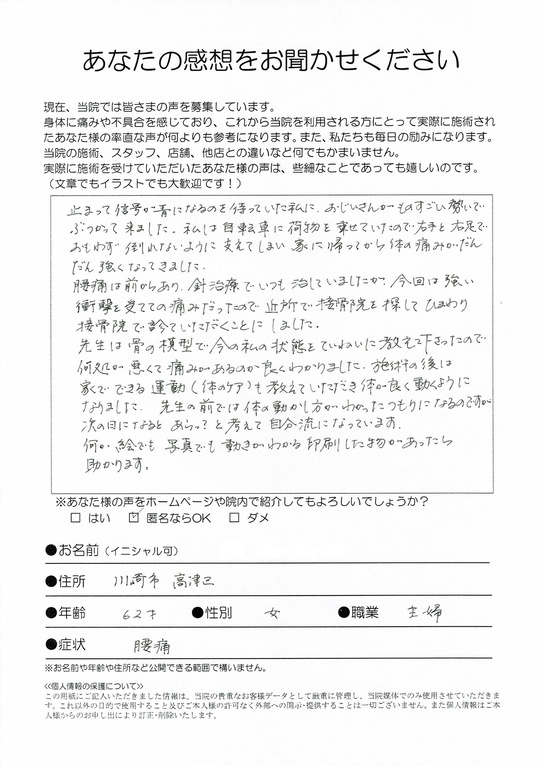 あなたの感想をお聞かせください
現在、当院では皆さまの声を募集しています。
身体に痛みや不具合を感じており、これから当院を利用される方にとって実際に施術され
たあなた様の率直な声が何よりも参考になります。また、私たちも毎日の励みになります。
当院の施術、スタッフ、店舗、他店との違いなど何でもかまいません。
実際に施術を受けていただいたあなた様の声は、些細なことであっても嬉しいのです。
（文章でもイラストでも大歓迎です！）
止まって信号が青になるのを待っていた私に、おじいさんがものすごい勢いで
ぶつかって来ました。私は自転車に荷物を乗せていたので右手と右足で
おもわず倒れないように支えてしまい家に帰ってから体の痛みがだん
だん強くなってきました。
腰痛は前からあり、針治療でいつも治していましたが、今回は強い
衝撃を受けての痛みだったので近所で接骨院を探してひまわり
接骨院で診ていただくことにしました。
先生は骨の模型で今の私の状態をていねいに教えて下さったので
何処が悪くて痛みがあるのか良くわかりました。施術の後は
家でできる運動（体のケア）も教えていただき体が良く動くように
なりました。先生の前では体の動かし方がわかったつもりになるのですが
次の日になるとあらっ？と考えて自分流になっています。
何か絵でも写真でも動きがわかる印刷した物があったら
助かります。
※あなた様の声をホームページや院内で紹介してもよろしいでしょうか？
□ はい ☑ 匿名ならOK □ ダメ
●お名前（イニシャル可）
●住所 川崎市 高津区
●年齢 62才 ●性別 女 ●職業 主婦
●症状 腰痛
※お名前や年齢や住所など公開できる範囲で構いません。
≪個人情報の保護について≫
この用紙にご記入いただきました情報は、当院の貴重なお客様データとして厳重に管理し、当院媒体でのみ使用させていただきま
す。これ以外の目的で使用すること及びご本人様の許可なく外部への開示・提供することは一切ございません。また個人情報はご本
人様からのお申し出により訂正・削除いたします。